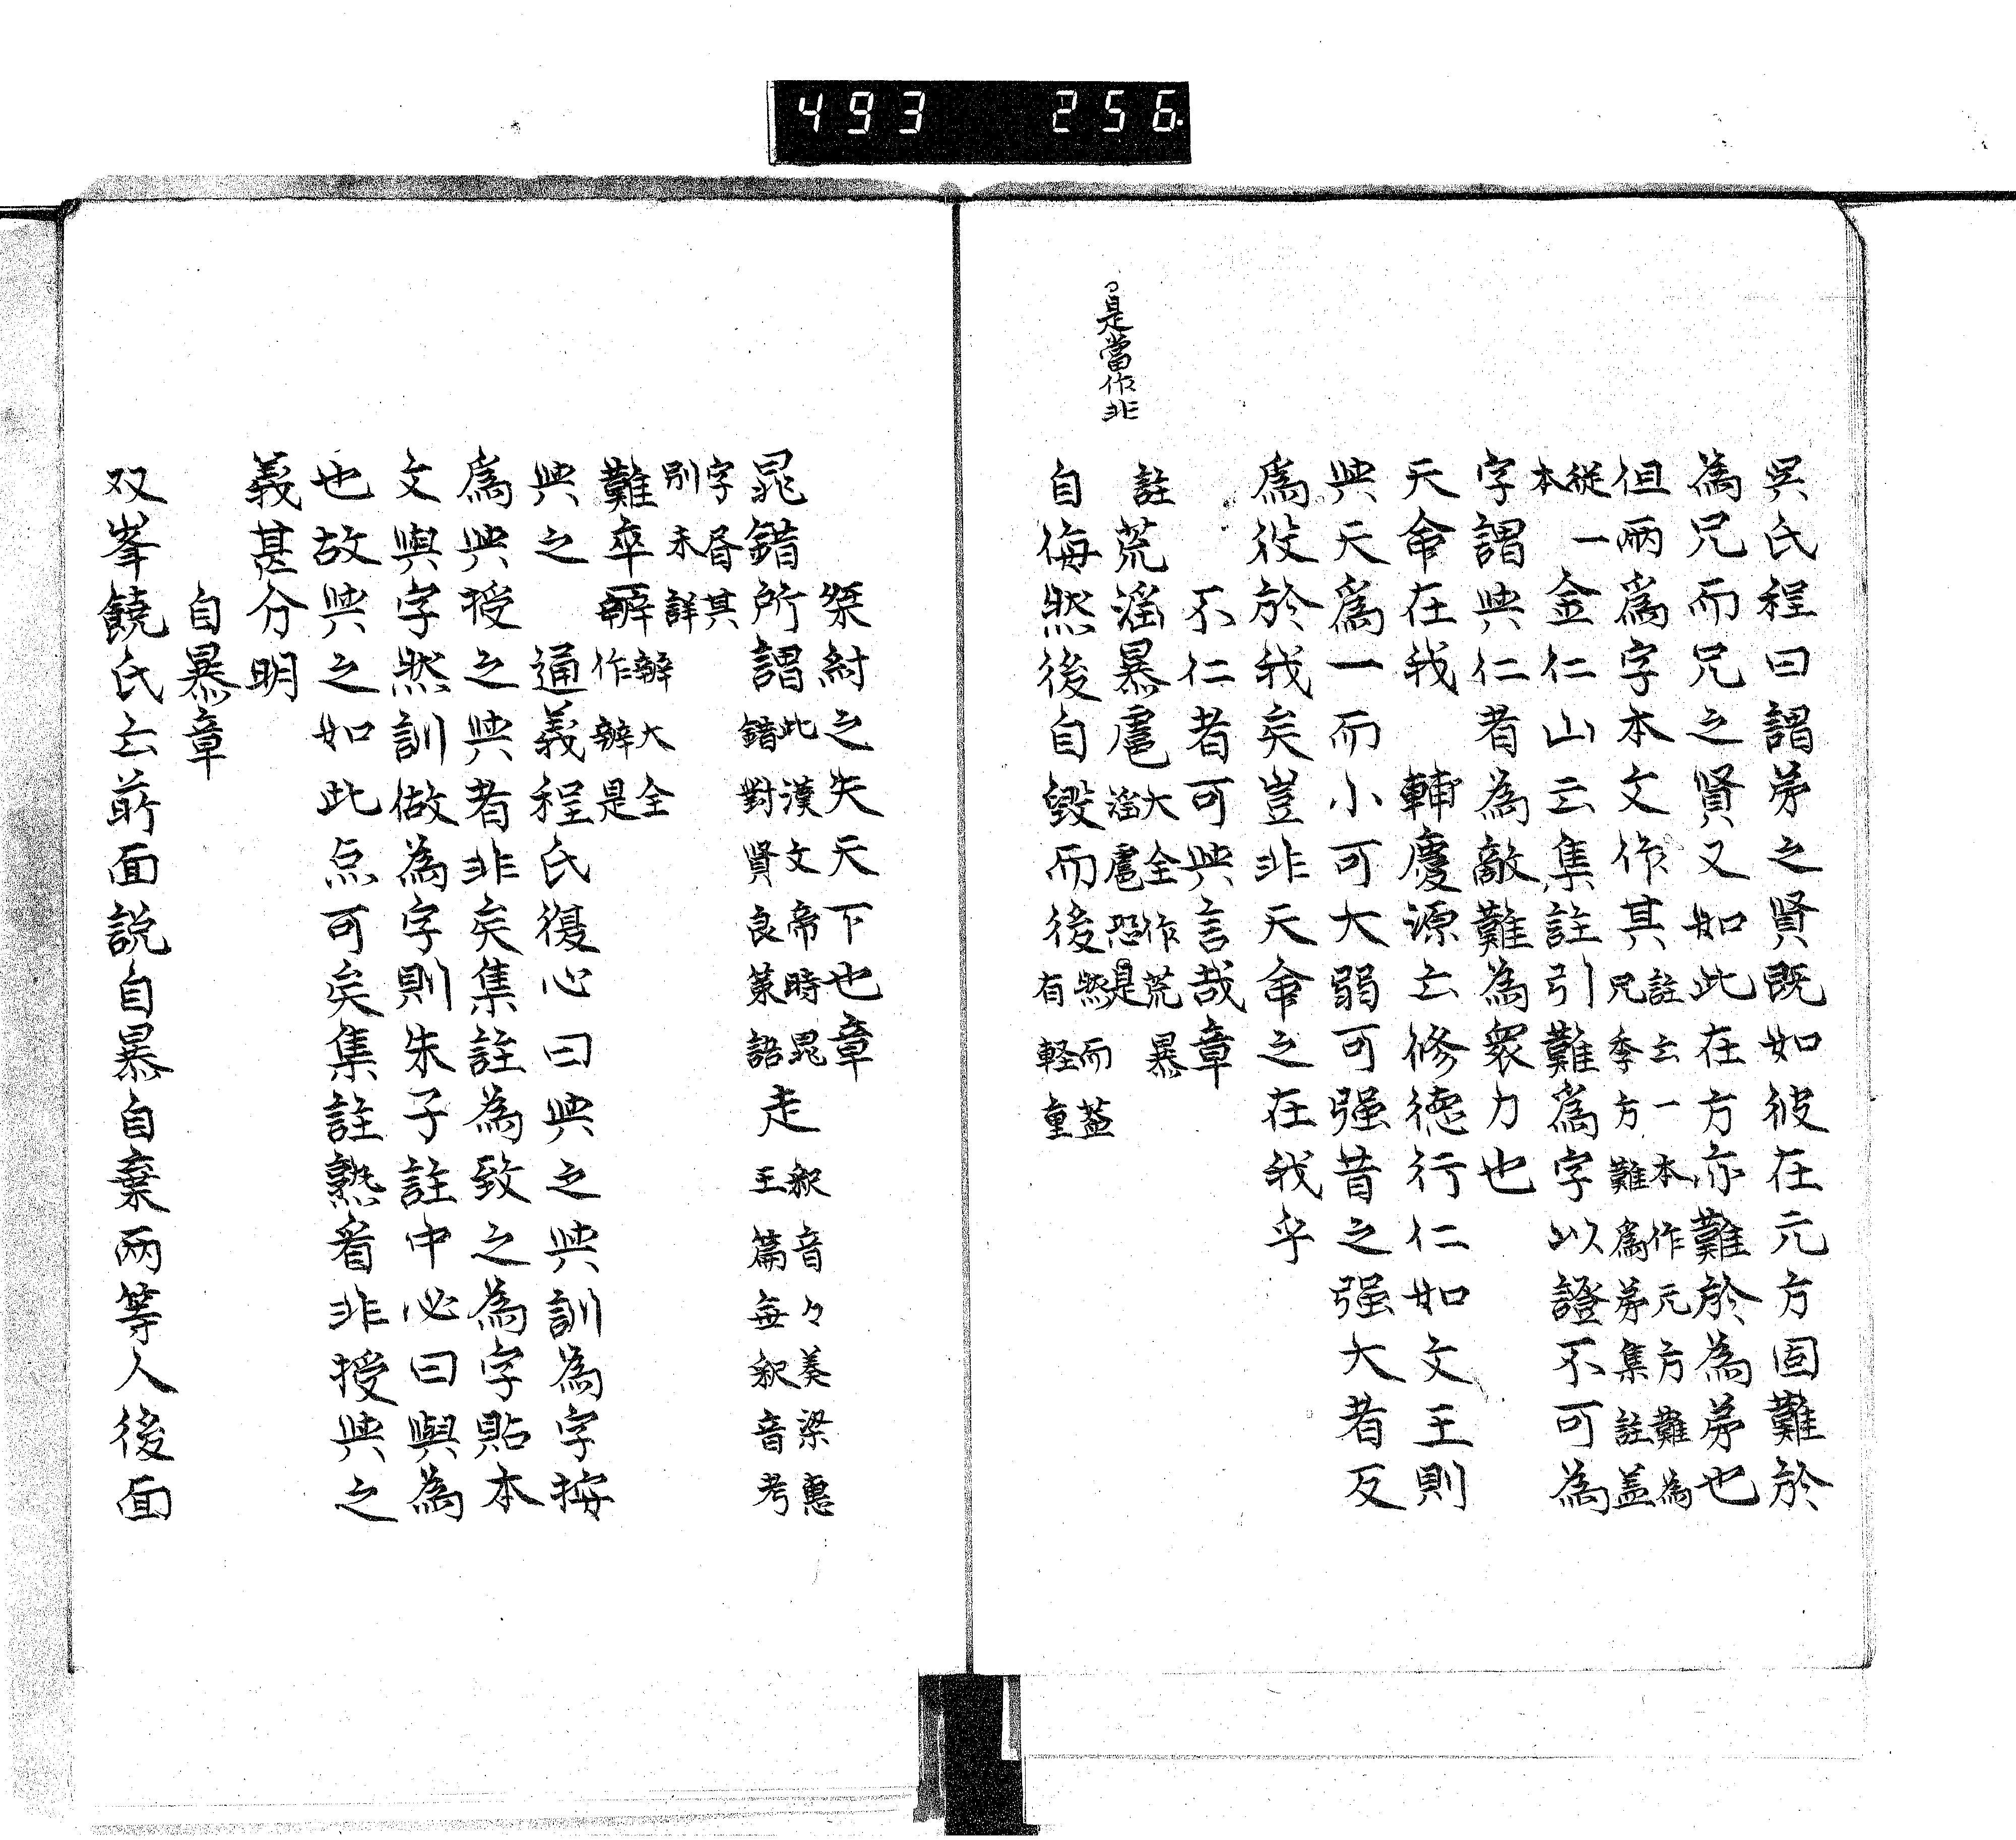 493 256.
呉氏程曰謂弟之賢既如彼在元方固難於
為兄而兄之賢又如此在方亦難於為弟也
但兩爲字本文作其註云一本作元方難為
兄季方難爲弟集註盖
從一
本
金仁山云集註引難爲字以證不可為
字謂與仁者為敵難為衆力也
天命在我 輔慶源云修德行仁如文王則
與天爲一而小可大弱可强昔之强大者反
爲役於我矣豈非天命之在我乎
不仁者可與言哉章
註荒滛暴虐大全作荒暴
滛虐恐是
っ是當作非
自侮然後自毀而後然而蓋
有軽重
桀紂之失天下也章
晁錯所謂此漢文帝時晁
錯對賢良策語
走釈音々奏梁惠
王篇無釈音考
字㫺其
別未詳
難卒辭辦大全
作辦是
與之 通義程氏復心曰與之與訓為字按
爲與授之與者非矣集註為致之為字貼本
文與字然訓做為字則朱子註中必曰與為
也故與之如此点可矣集註熟看非授與之
義甚分明
自暴章
双峯饒氏云前面説自暴自棄兩等人後面